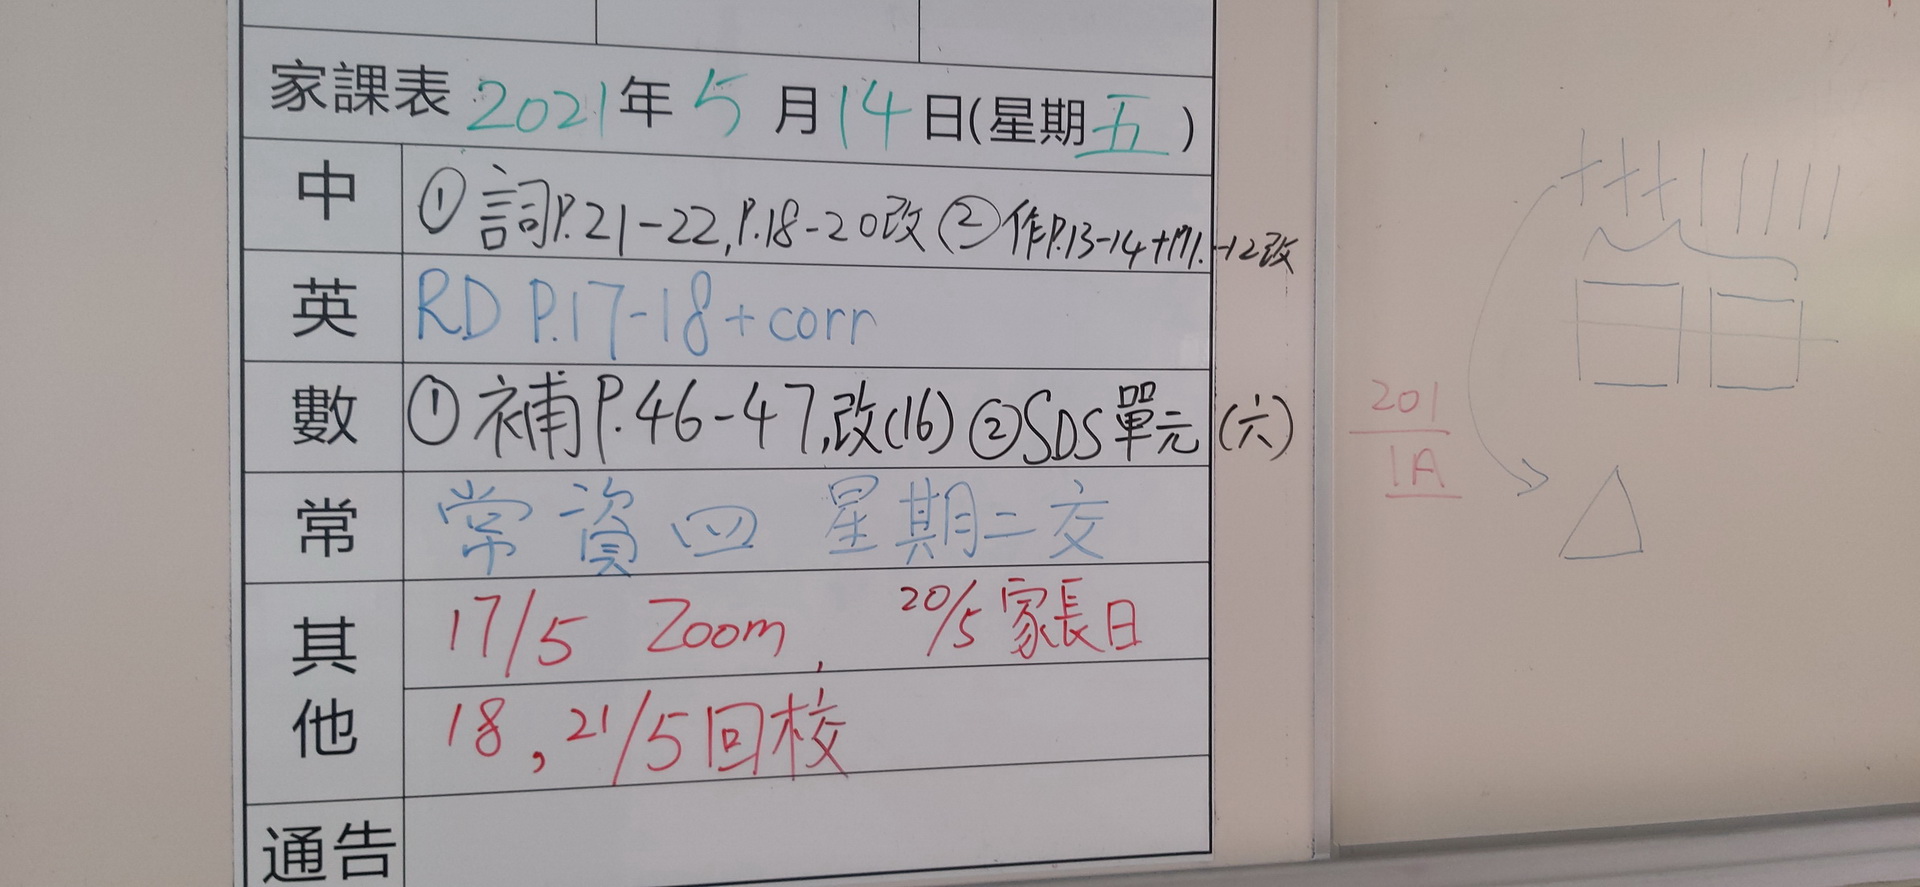 家課表 2021年 5 月 14 日(星期五)
中 ① 詞P.21-22,P.18-20改 ② 作P.13-14+P11.-12改
英 RD P.17-18+corr
數 ① 補P.46-47,改(16) ②SDS單元(六)
常 常資四 星期二交
其他 17/5 Zoom, 20/5家長日
18,21/5回校
通告
201
1A